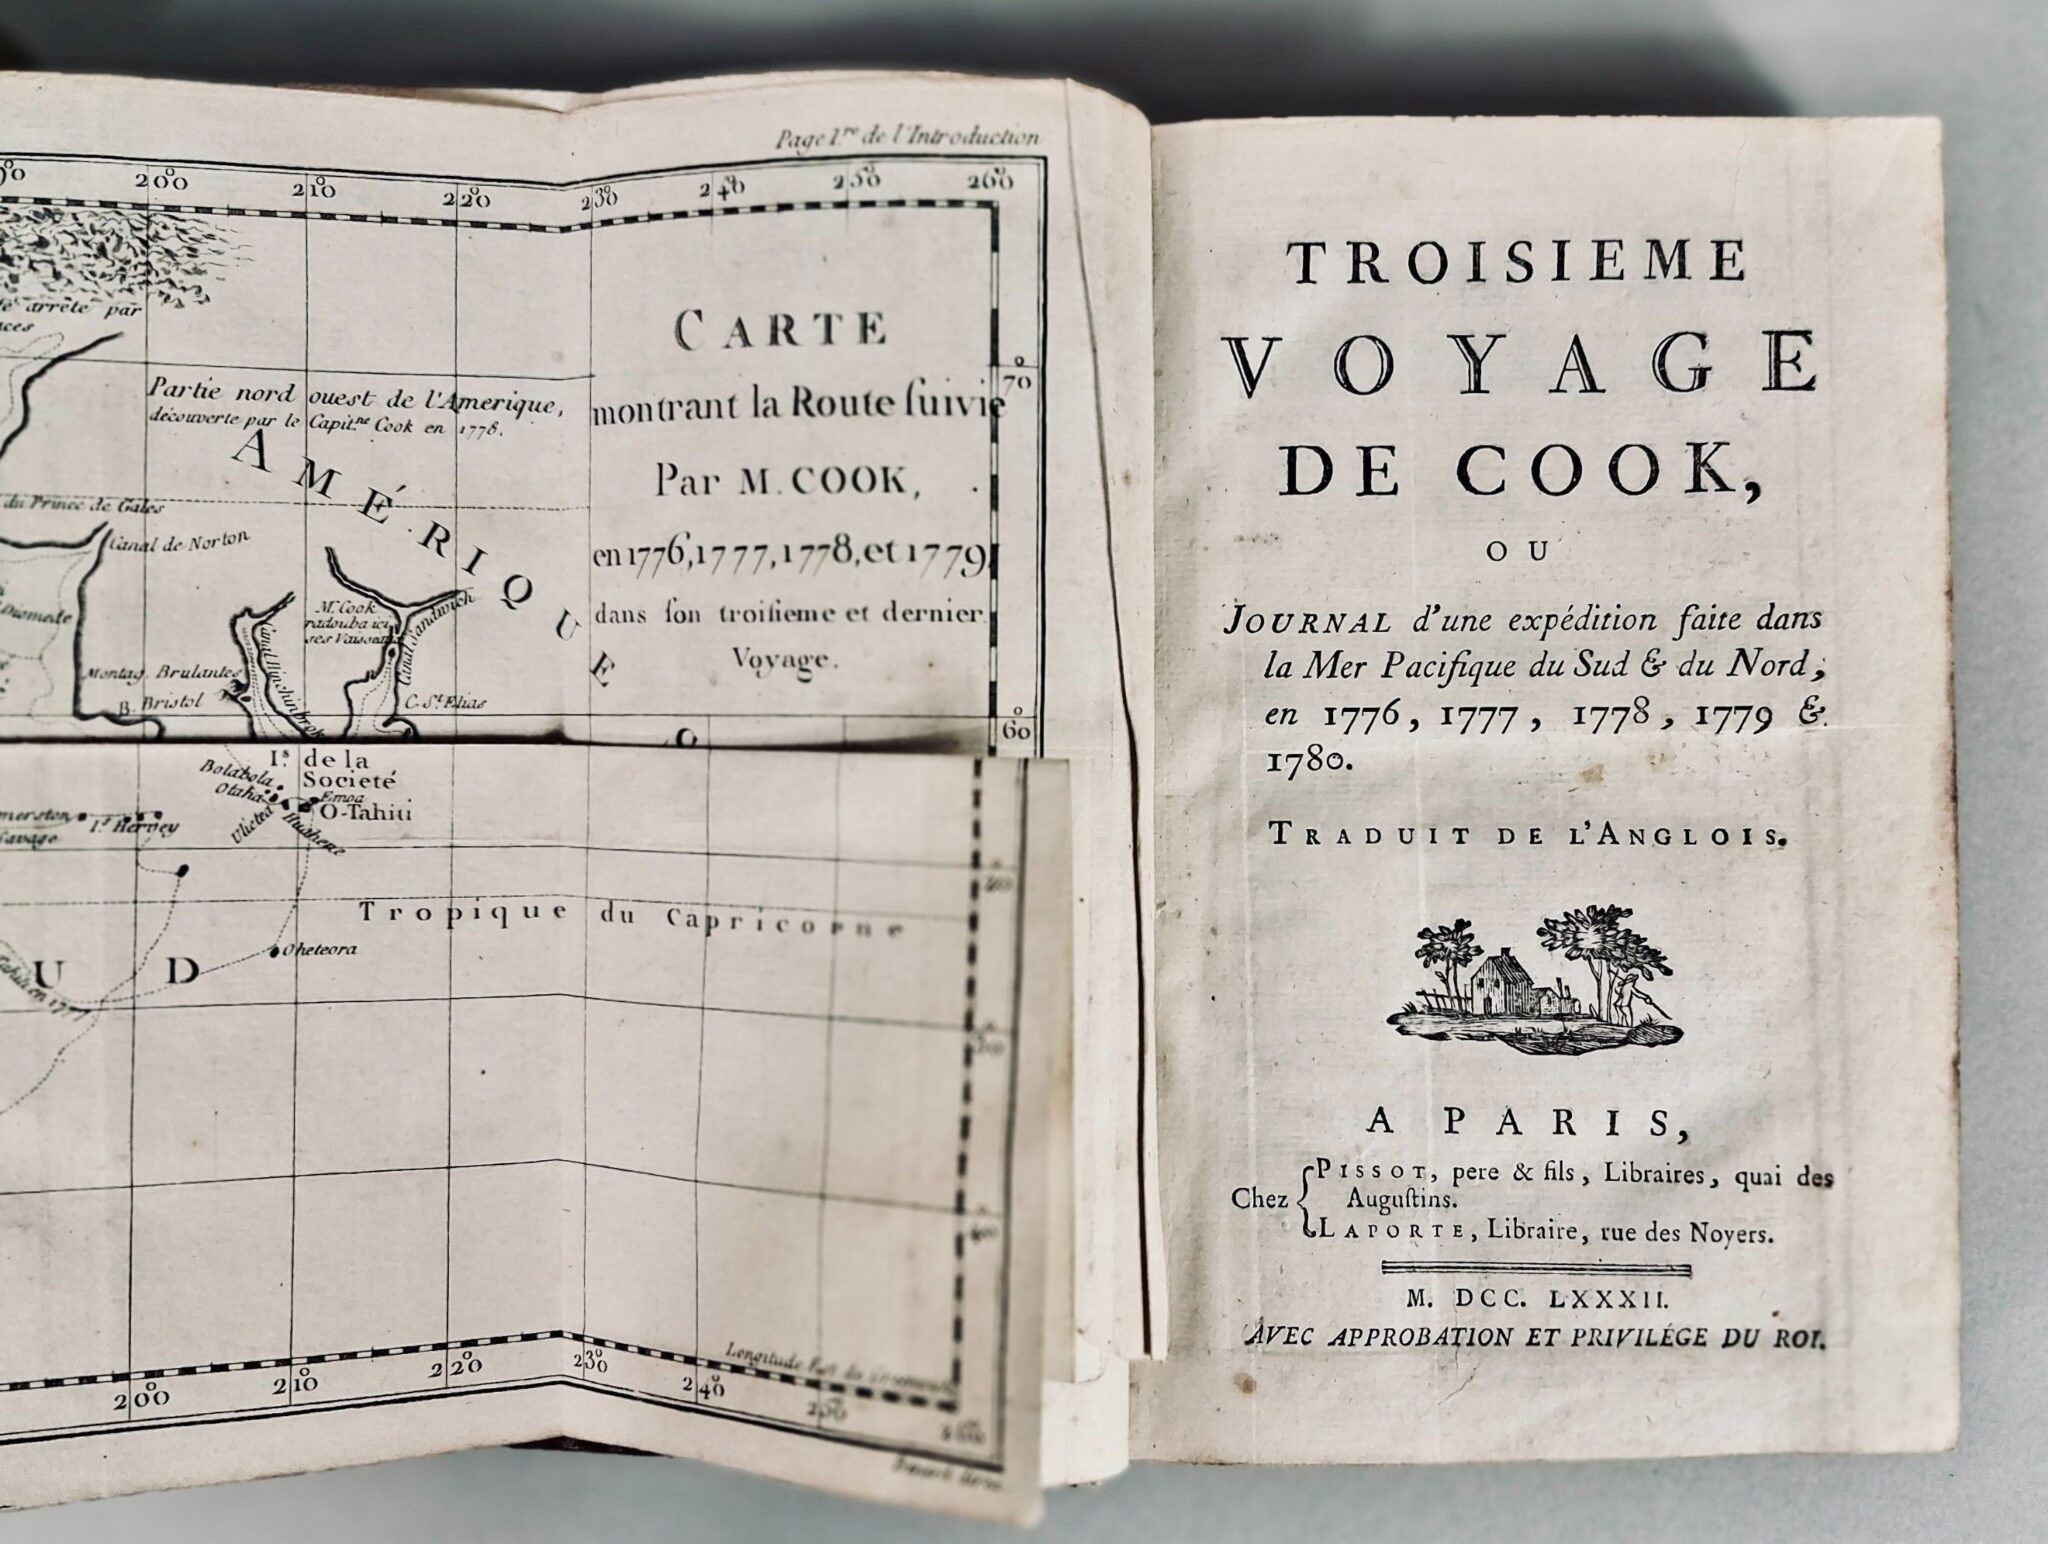 Page 1.re de l'Introduction
200 210 220 230 240 250 260
arrête par
CARTE
montrant la Route ſuivie
Par M. COOK,
en 1776, 1777, 1778, et 1779,
dans ſon troiſieme et dernier
Voyage.
70
Partie nord ouest de l'Amerique,
découverte par le Capit.ne Cook en 1778.
AMÉRIQUE
du Prince de Gales
Canal de Norton
Mr. Cook
radouba ici
ses Vaisseaux
Canal Sandwich
Montag. Brulantes
B. Bristol
C. St. Elias
60
Is. de la
Societé
Bolabola
Otaha
Emoa
O-Tahiti
Ulietea
Huahene
Is. Hervey
Tropique du Capricorne
Oheteora
UD
200 210 220 230 240 250
TROISIEME
VOYAGE
DE COOK,
OU
JOURNAL d'une expédition faite dans
la Mer Pacifique du Sud & du Nord;
en 1776, 1777, 1778, 1779 &
1780.
TRADUIT DE L'ANGLOIS.
A PARIS,
Chez
PISSOT, pere & fils, Libraires, quai des
Auguſtins.
LAPORTE, Libraire, rue des Noyers.
M. DCC. LXXXII.
AVEC APPROBATION ET PRIVILÉGE DU ROI.